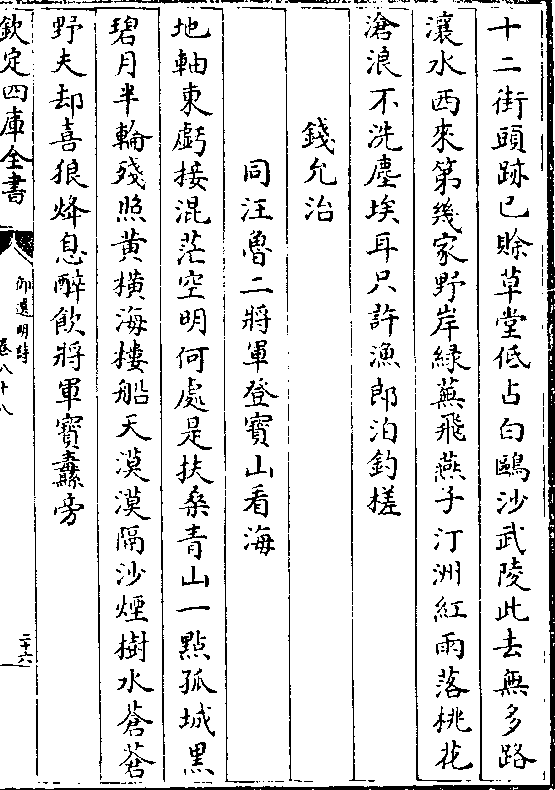 十二街頭跡已賖草堂低占白鷗沙武陵此去無多路
瀼水西來第幾家野岸緑蕪飛燕子汀洲紅雨落桃花
滄浪不洗塵埃耳只許漁郎泊釣槎
錢允治
同汪魯二將軍登寳山看海
地軸東虧接混茫空明何處是扶桑青山一點孤城黒
碧月半輪殘照黄横海樓船天漠漠隔沙煙樹水蒼蒼
野夫却喜狼烽息醉飲將軍寳纛旁
欽定四庫全書
御選明詩
卷八十八
二十六